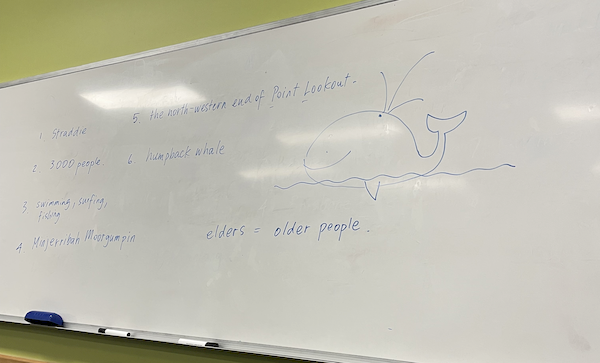 1. Straddie
2. 3000 people.
3. swimming, surfing,
fishing
4. Minjerribah Moorgumpin
5. the north-western end of Point Lookout.
6. humpback whale
elders = older people.